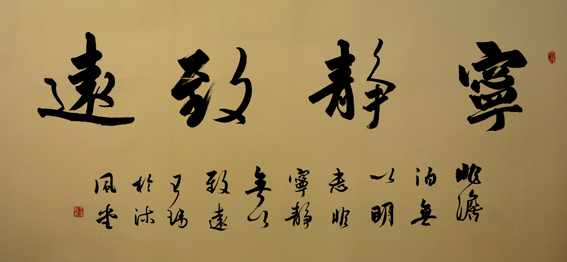 寧靜致遠
非澹
泊無
以明
志非
寧靜
無以
致遠
於沐
風堂